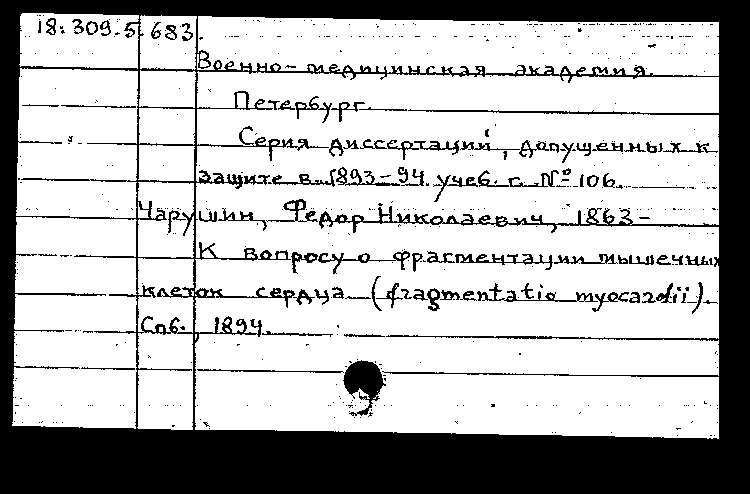 18:309.5.683.
Военно-медицинская академия.
Петербург.
Серия диссертаций, допущенных к
защите в 1893-94 учеб. г. № 106.
Чарушин, Федор Николаевич, 1863-
К вопросу о фрагментации мышечных
клеток сердца (fragmentatio myocardii).
Спб., 1894.